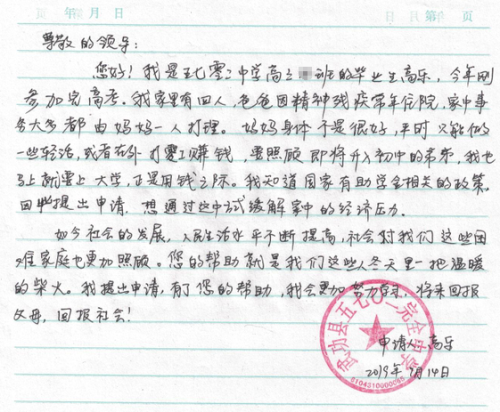 年 月 日
尊敬的领导：
您好！我是五七零二中学高三 班的毕业生高乐，今年刚
参加完高考。我家里有四人，爸爸因精神残疾常年住院，家中事
务大多都由妈妈一人打理。妈妈身体不是很好，平时只能做
一些轻活，或者在外打零工赚钱，要照顾即将升入初中的弟弟，我也
马上就要上大学，正是用钱之际。我知道国家有助学金相关的政策。
因此提出申请，想通过这中式缓解家中的经济压力。
如今社会的发展，人民生活水平不断提高，社会对我们这些困
难家庭也更加照顾。您的帮助就是我们这些人冬天里一把温暖
的柴火。我提出申请，有了您的帮助，我会更加努力学习，将来回报
父母，回报社会！
武功县五七〇二完全中学
申请人：高乐
2019年7月14日